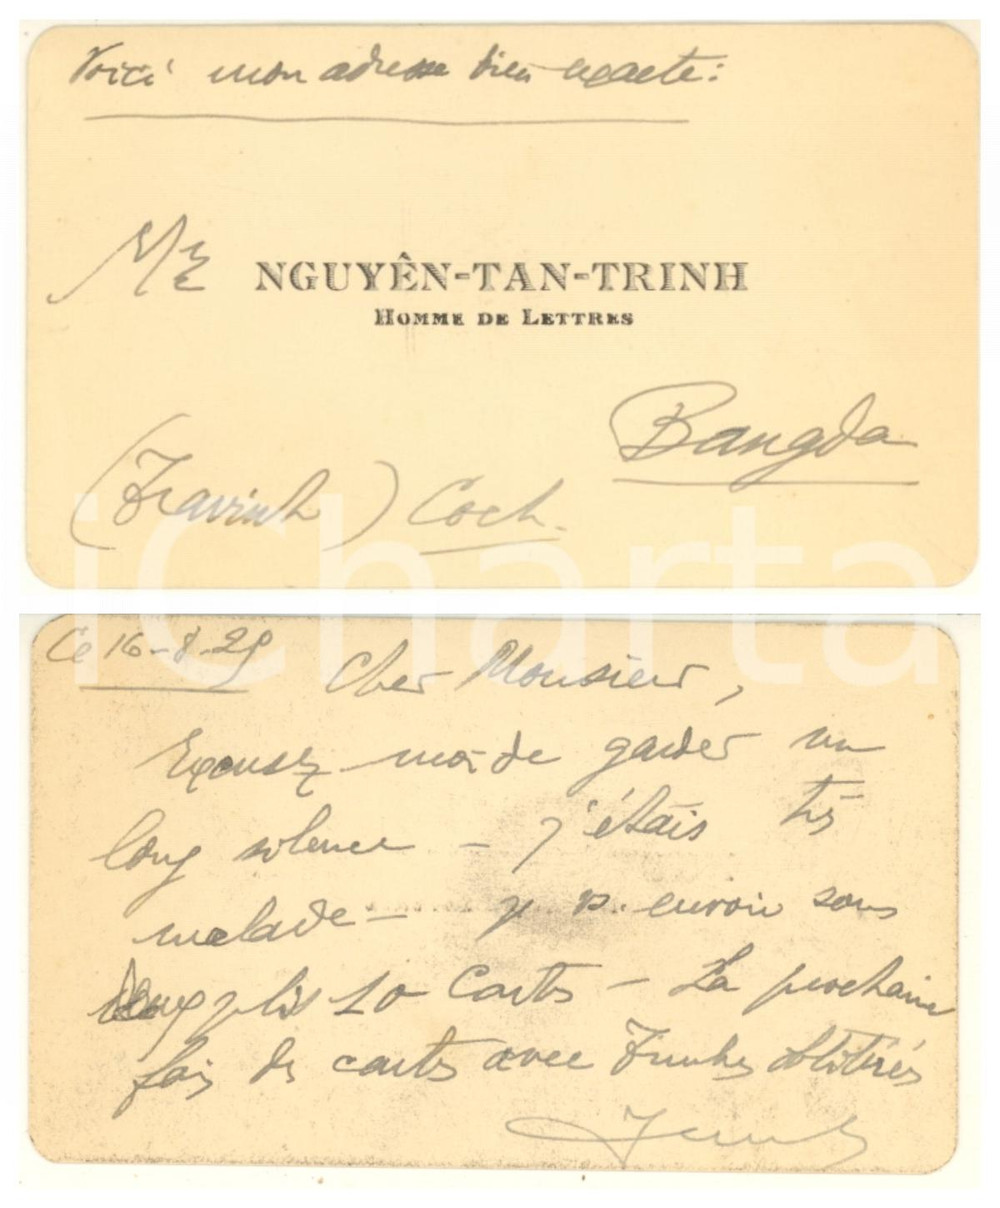 Voici mon adresse bien exacte:
Mr NGUYÊN-TAN-TRINH
HOMME DE LETTRES
Bangda
(Travinh) Coch.
iCharta
Ce 16-8-29
Cher Monsieur,
Excusez moi de garder un
long silence - j'étais très
malade - je vs. envoie sous
deux plis 10 Cartes - La prochaine
fois des cartes avec Timbres oblitérés